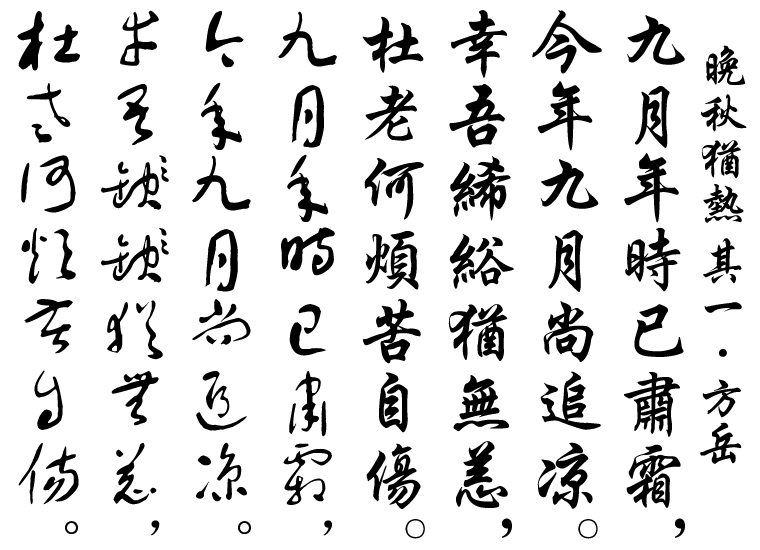 晚秋猶熱 其一·方岳
九月年時已肅霜，
今年九月尚追凉。
幸吾絺綌猶無恙，
杜老何煩苦自傷。
九月年時已肅霜，
今年九月尚追凉。
幸吾猶無恙，
杜老何煩苦自傷。